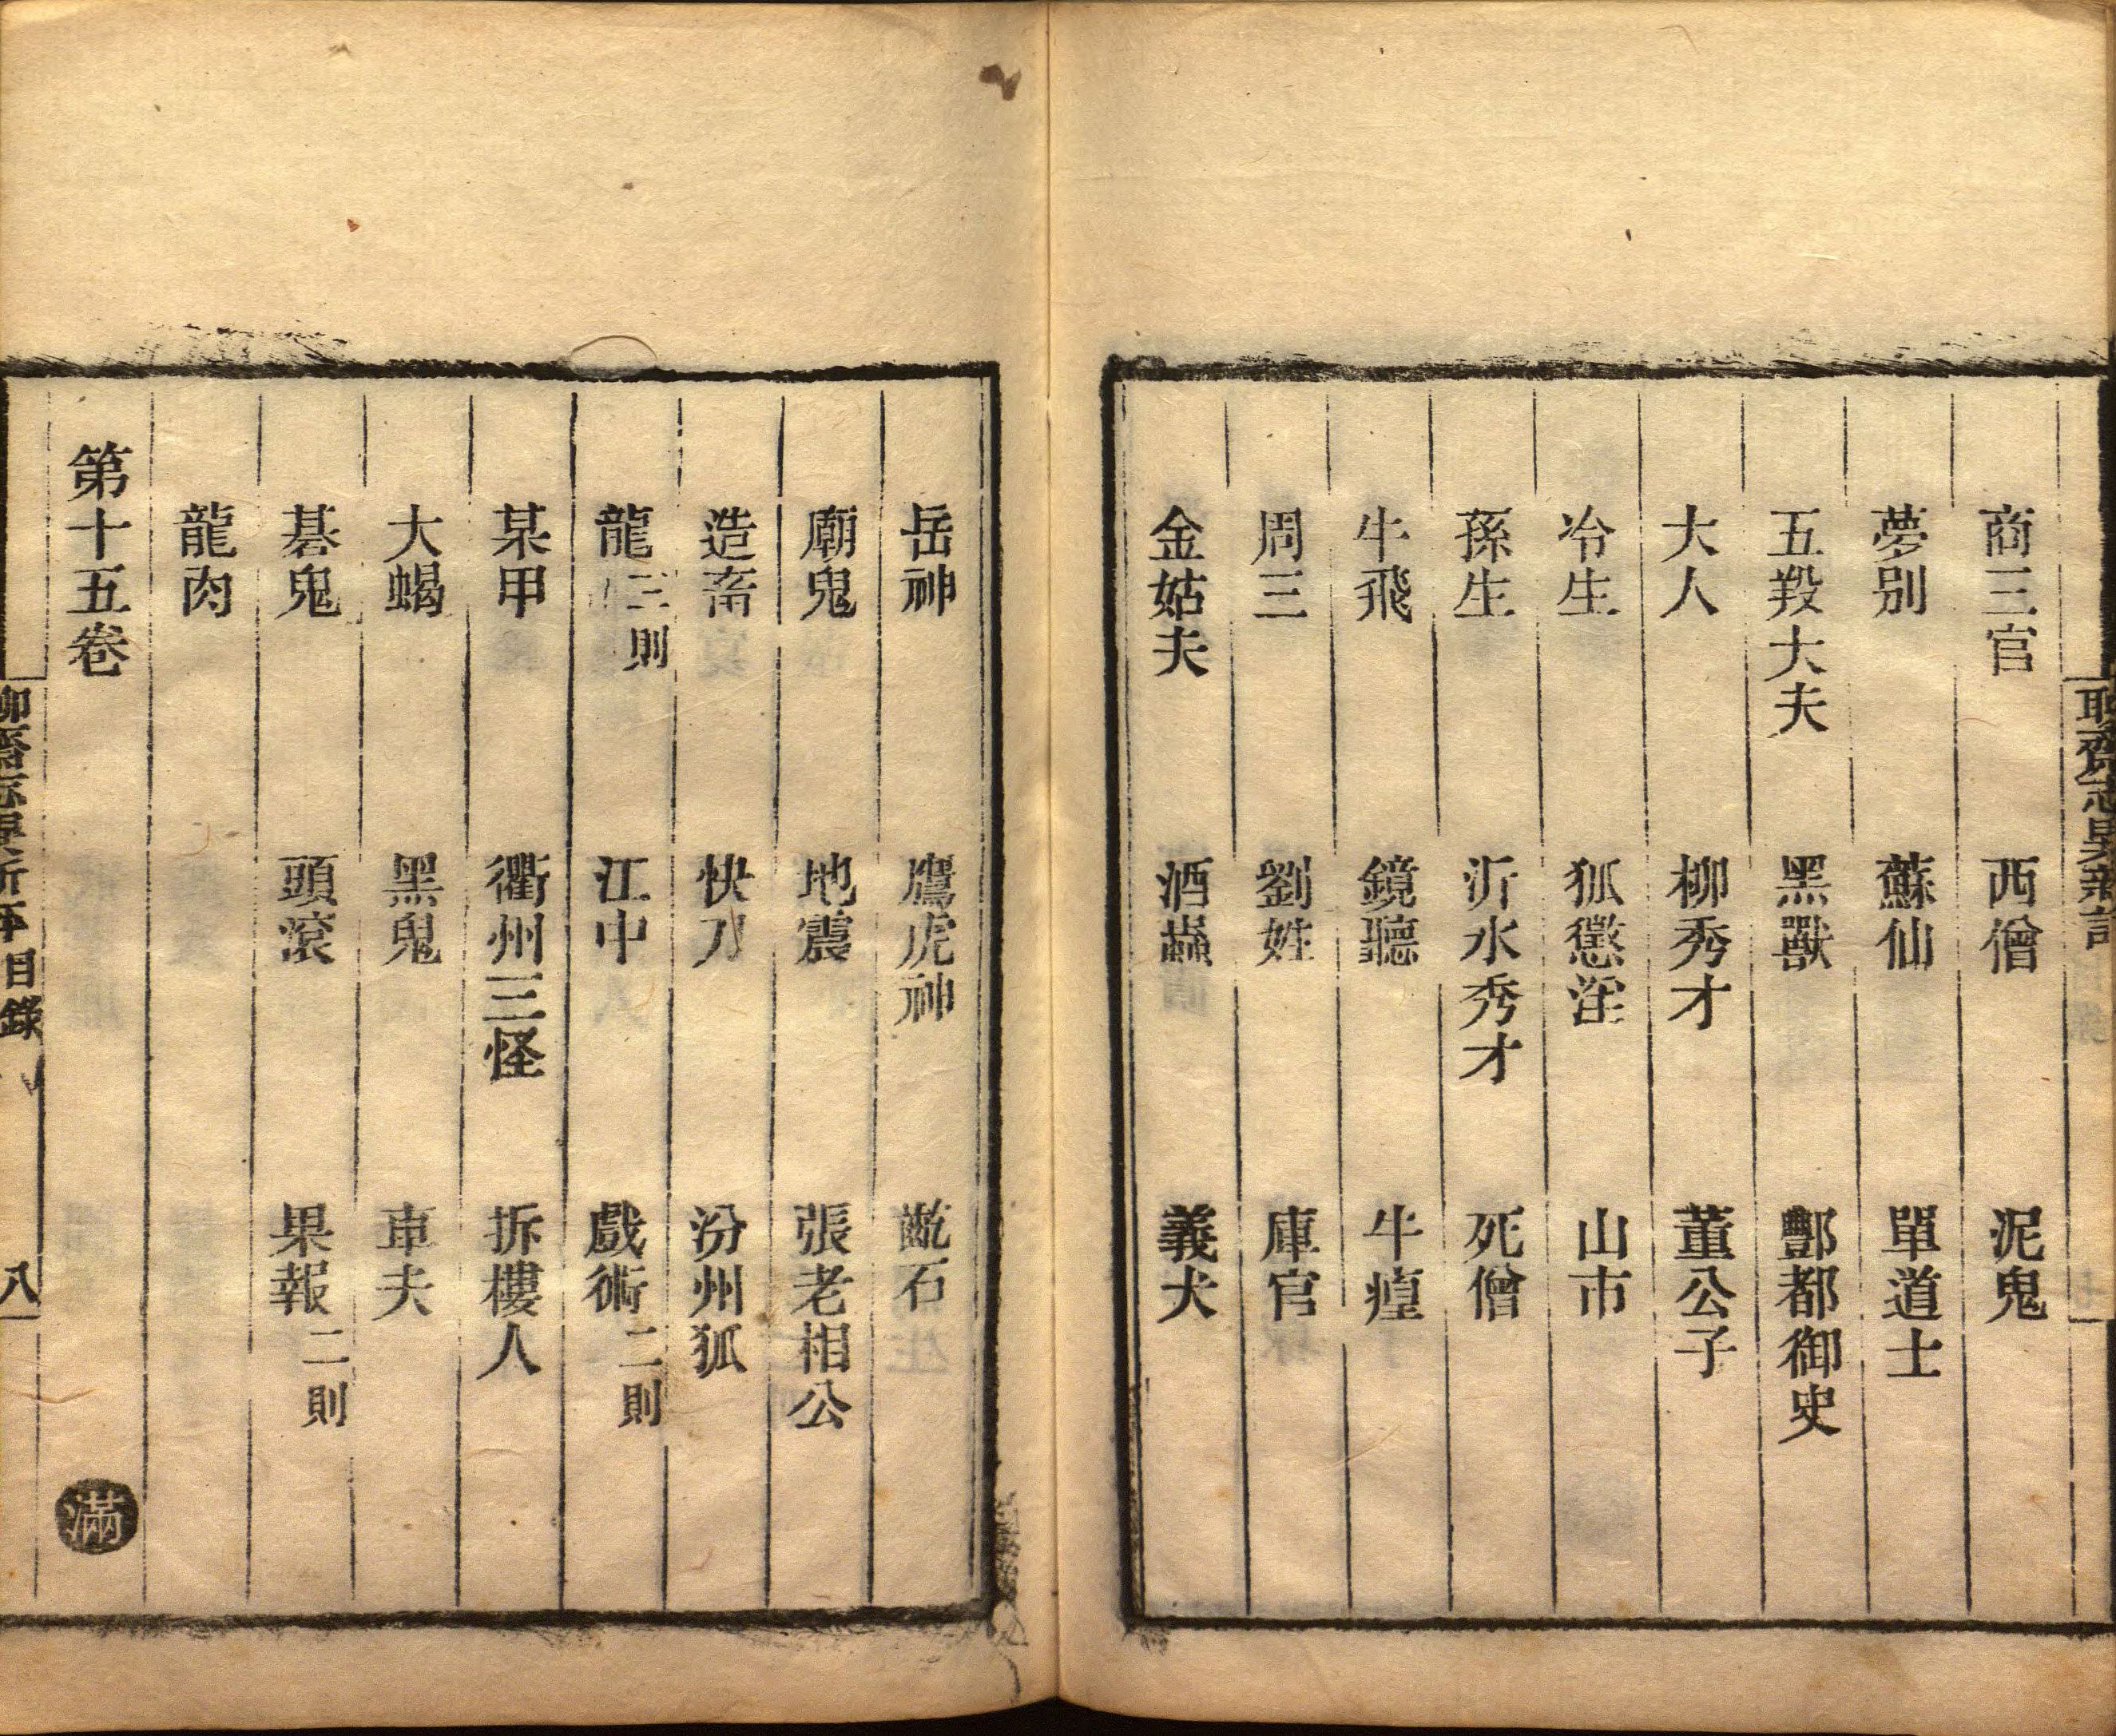 聊齋志異新評
商三官 西僧 泥鬼
夢别 蘇仙 單道士
五羖大夫 黑獸 酆都御史
大人 柳秀才 董公子
冷生 狐懲淫 山市
孫生 沂水秀才 死僧
牛飛 鏡聽 牛㾮
周三 劉姓 庫官
金姑夫 酒蟲 義犬
岳神 鷹虎神 齕石
廟鬼 地震 張老相公
造畜 快刀 汾州狐
龍三則 江中 戲術二則
某甲 衢州三怪 拆樓人
大蝎 黑鬼 車夫
碁鬼 頭滾 果報二則
龍肉
第十五卷 滿
聊齋志異新評 目錄 八